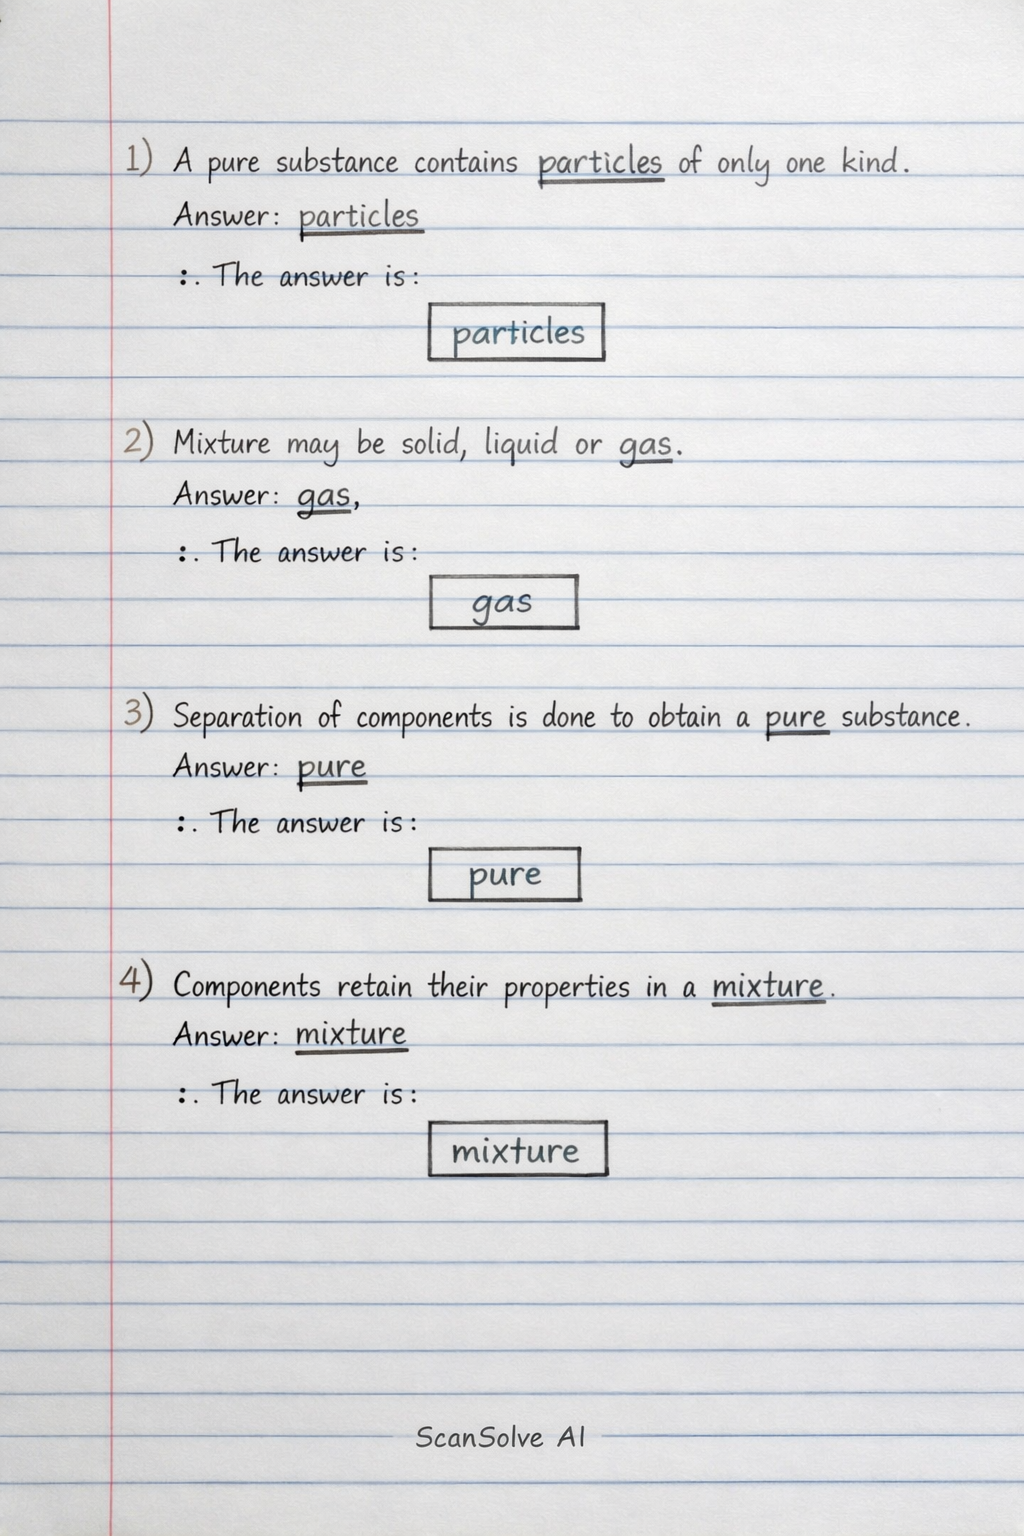 1) A pure substance contains particles of only one kind.
Answer: particles
:. The answer is:
particles
2) Mixture may be solid, liquid or gas.
Answer: gas,
:. The answer is:
gas
3) Separation of components is done to obtain a pure substance.
Answer: pure
:. The answer is:
pure
4) Components retain their properties in a mixture.
Answer: mixture
:. The answer is:
mixture
ScanSolve AI